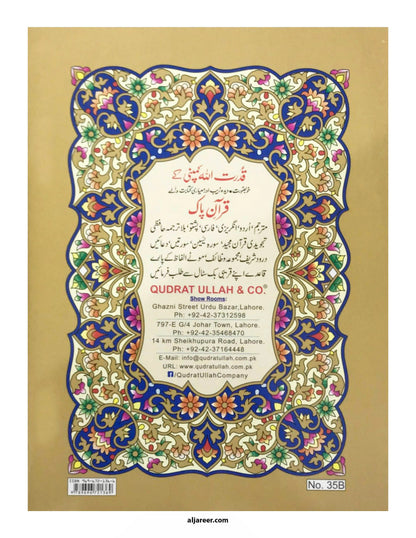 قدرت اللہ کمپنی کے
خوبصورت، دیدہ زیب اور معیاری کتابت والے
قرآن پاک
مترجم اُردو، انگریزی، فارسی، پشتو، بلا ترجمہ حافظی
تجویدی قرآن مجید، سورہ یٰسین، سورتیں، دعائیں
درود شریف، مجموعہ وظائف، موٹے الفاظ کے پارے
قاعدے اپنے قریبی بک سٹال سے طلب فرمائیں
QUDRAT ULLAH & CO®
Show Rooms:
Ghazni Street Urdu Bazar,Lahore.
Ph: +92-42-37312598
797-E G/4 Johar Town, Lahore.
Ph: +92-42-35468470
14 km Sheikhupura Road, Lahore.
Ph: +92-42-37164448
E-Mail: info@qudratullah.com.pk
URL: www.qudratullah.com.pk
/QudratUllahCompany
No. 35B
aljareer.com